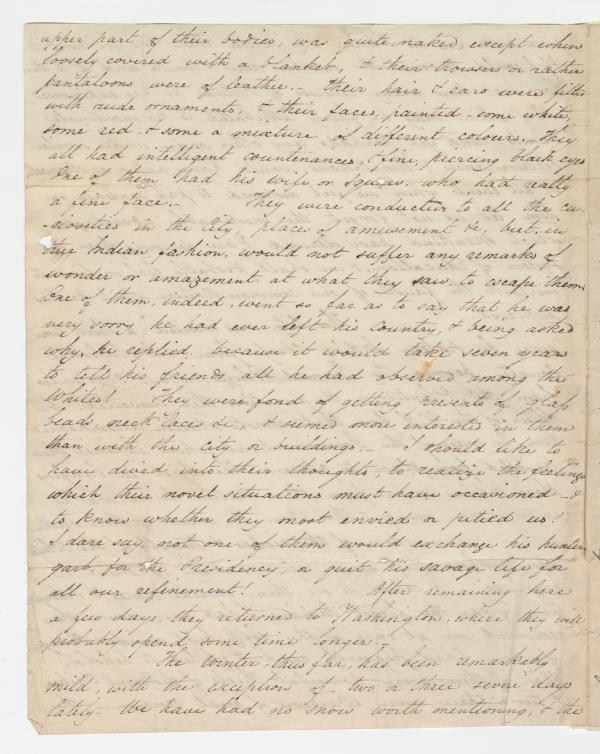 upper part of their bodies, was quite naked, except when
loosely covered with a blanket, & their trowser or rather
pantaloon were of leather.- Their hair & ears were
with rude ornaments, & their faces, painted - some white,
some red & some a mixture of different colours. They
all had intelligent countenances, & fine, piercing black eyes
One of them had his wife or Squaw, who had really
a fine face.- They were conducted to all the cu-
-riosities in the City, places of amusement &c, but, in
true Indian fashion, would not suffer any remarks of
wonder or amazement at what they saw, to escape them.
One of them, indeed, went so far as to say that he was
very sorry he had ever left his Country, & being asked
why, he replied, because it would take seven years
to tell his friends all he had observed among the
Whites! They were fond of getting presents of glass
beads, neck laces &c, & seemed more interested in them
than with the city or buildings.- I should like to
have dived into their thoughts, to realize the feelings
which their novel situations must have occasioned - &
to know whether they most envied or pitied us!
I dare say, not one of them would exchange his hunter
garb, for the Presidency, or quit his savage life for
all our refinement! After remaining here
a few days, they returned to Washington, where they will
probably spend some time longer.-
The winter, thus far, has been remarkably
mild, with the exception of two or three severe days
lately - We have had no snow worth mentioning, & the